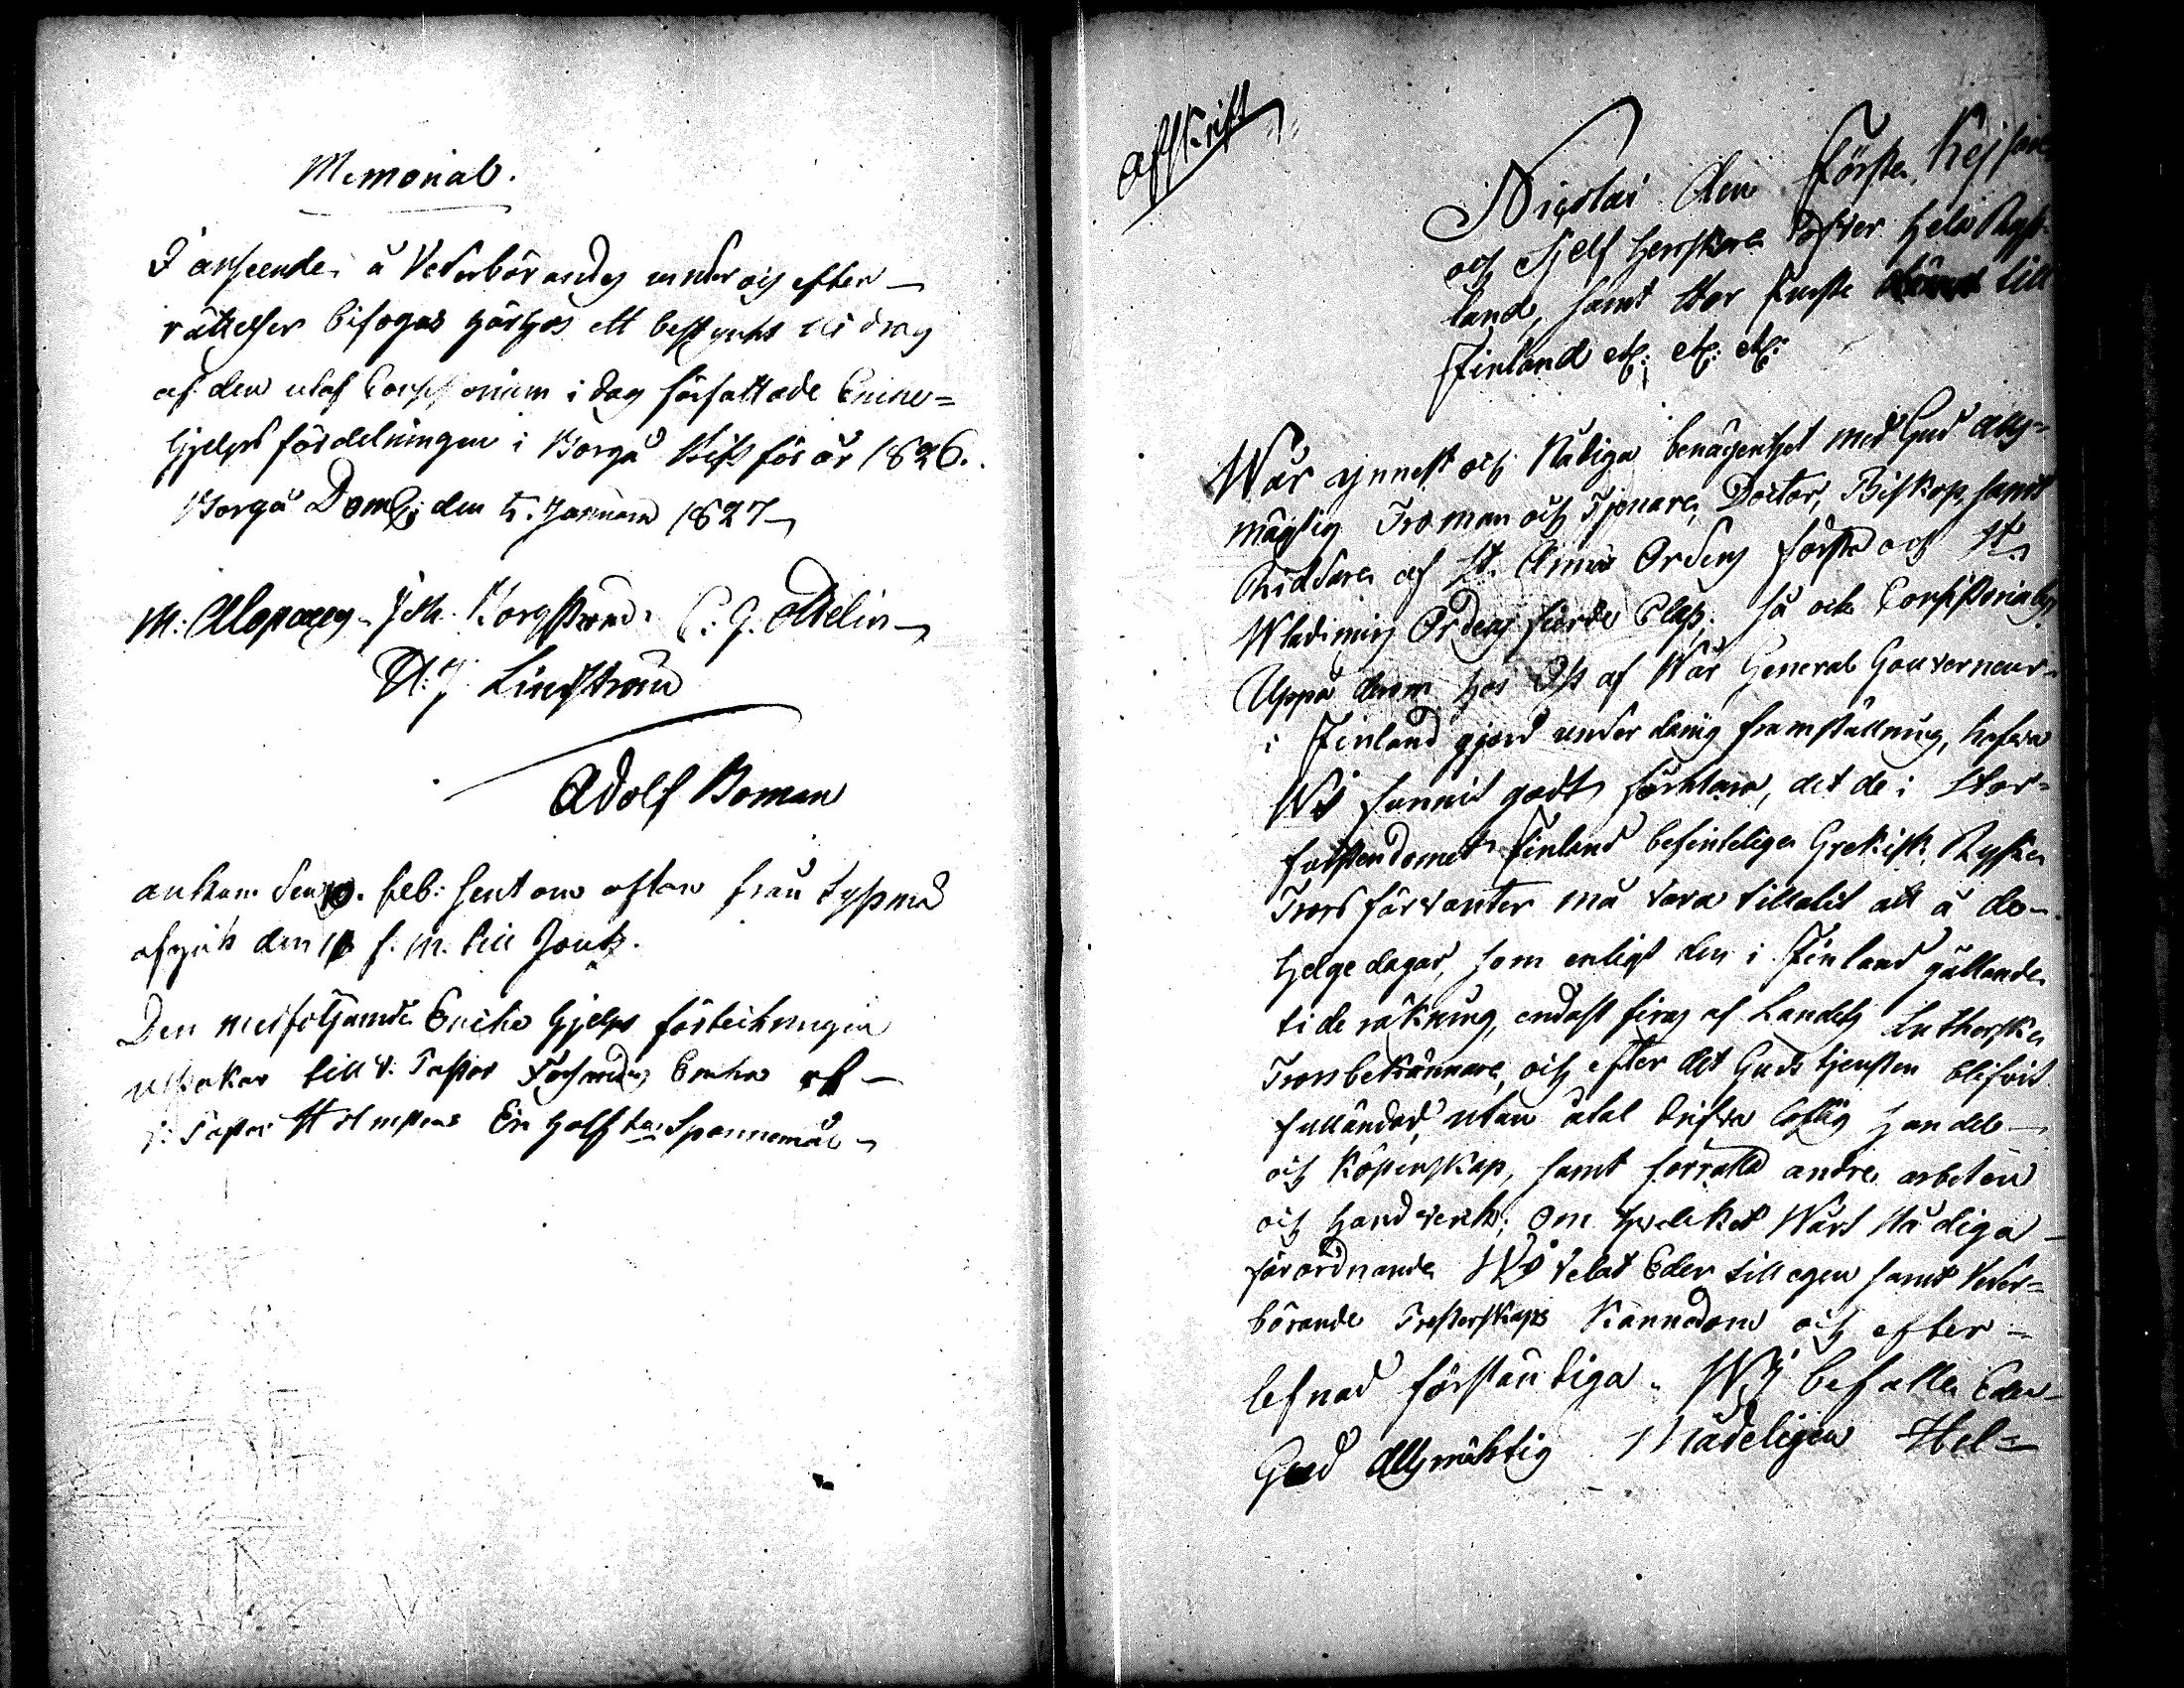 Memorial.
I anseende å Vederbörandes under och efter-
rättelser bifogas härhos ett bestyrkt utdrag
af den utaf Consistorium i dag författade Encke-
hjelps fördelningen i Borgå Stift för år 1826.
Borgå Domk: den 5. Januari 1827
M: Alopaeus. Joh. Borgström. C. G. Ottelin
A: J Lindström
Adolf Boman
ankom den 10. feb: sent om afton från
afgick den 11 f. m. till Jouk.
Den medföljande Encke hjelps förteckningen
utvisar till v. Pastor Enka
Pastor Holmstens En half t:a Spannemål
Afskrift
Nicolai den Förste, Kejsare
och Sjelfherrskare öfver hela Ryss-
land, samt Stor Furste till
Finland etc: etc: etc:
Wår ynnest och Nådiga benägenhet med Gud Alls-
mägtig Troman och Tjenare, Doctor, Biskop, samt
Riddare af St. Anna Ordens första och St.
Wladimirs Ordens fjerde Class. så ock Consistorialer
Uppå derom hos Oss af Wår General Gouverneur
i Finland gjord underdånig framställning, hafva
Wi funnit godt förklara, det de i Stor-
furstendömet Finland befintelige Grekisk Ryska
Trosförvanter må vara tillåtit att å de
helgedagar, som enligt den i Finland gällande
tideräkning, endast firas af Landets Lutherska
Trosbekännare, och efter det Gudstjensten blifvit
fulländad, utan åtal drifva loflig handel
och köpenskap, samt förrätta andra arbeten
och handverk; Om hvilket Wårt Nådiga
förordnande Wi velat Eder till egen samt Veder-
börande Presterskaps kännedom och efter-
lefnad förständiga. Wi befalle Eder
Gud Allsmäktig Nådeligen Hel-